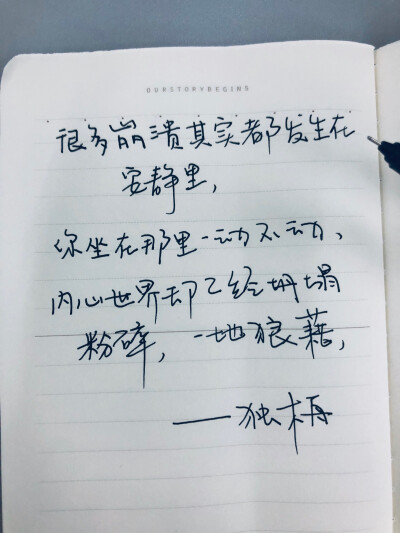 OURSTORYBEGINS
很多崩溃其实都发生在
安静里，
你坐在那里一动不动、
内心世界却已经坍塌
粉碎，一地狼藉，
——独木舟